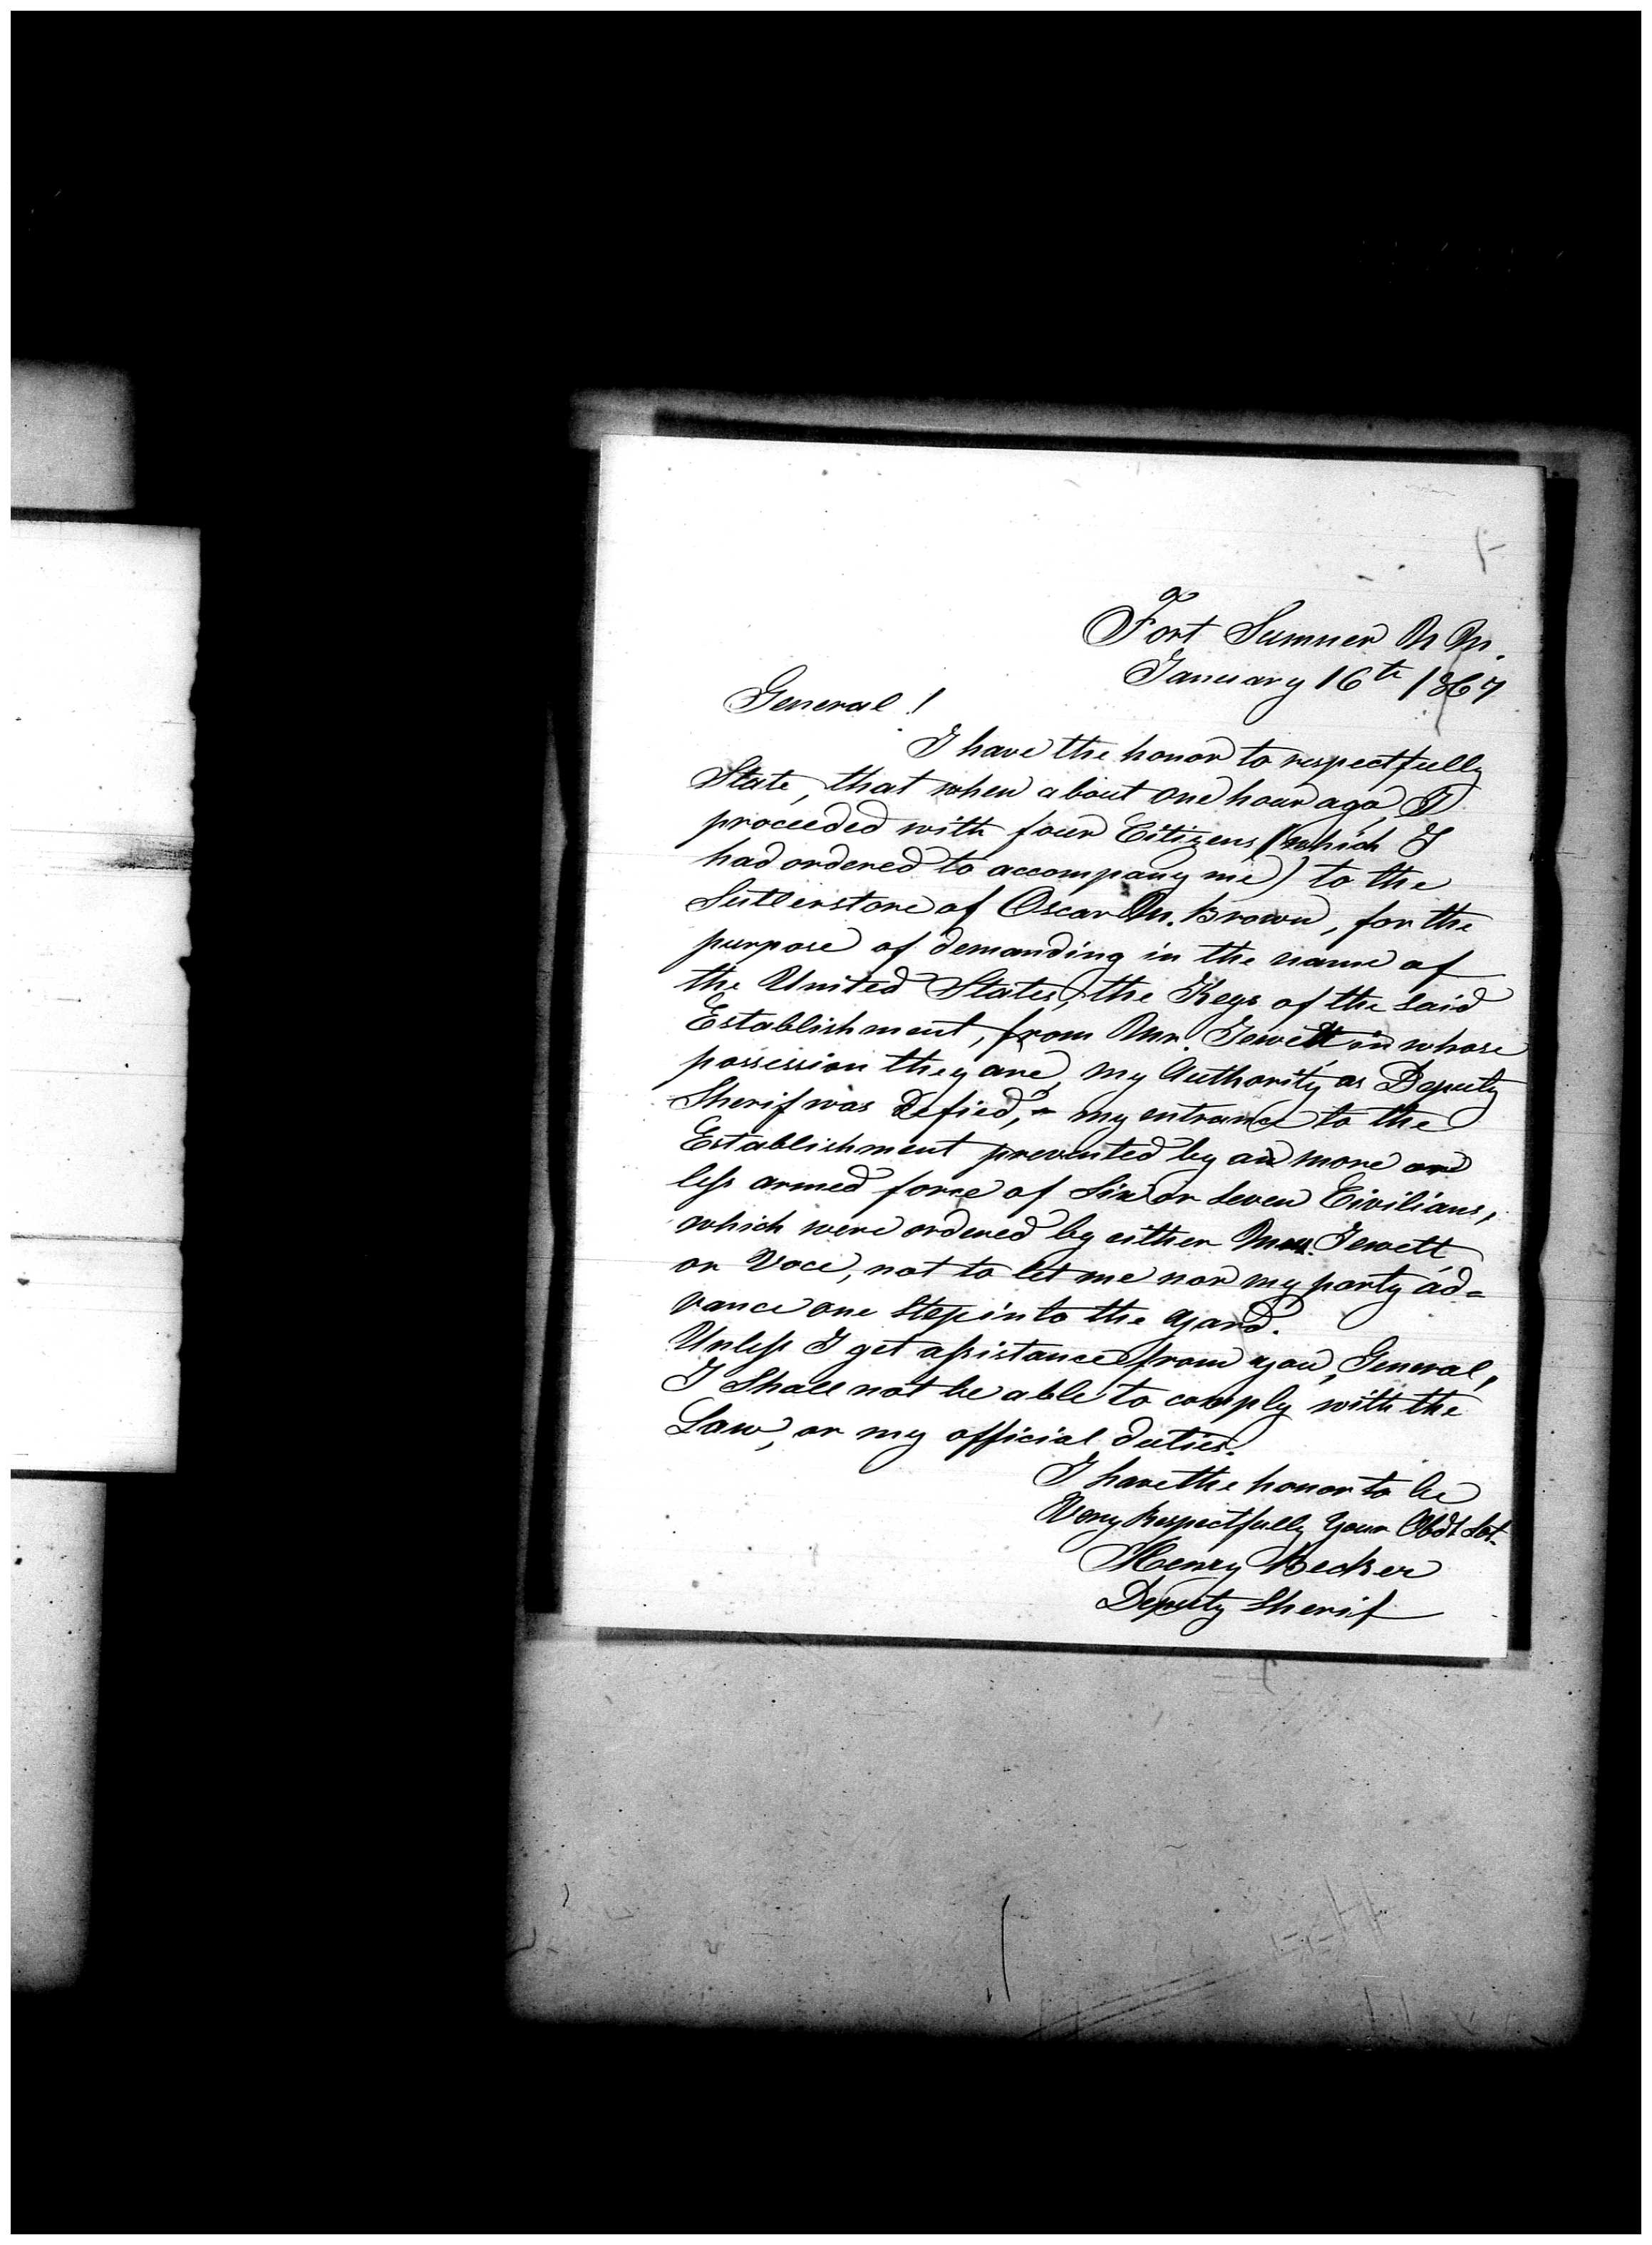 Fort Sumner N M.
January 16th 1867
General!
I have the honor to respectfully
State, that when about one hour ago, I
proceeded with four Citizens (which I
had ordered to accompany me) to the
Sutlerstore of Oscar M. Brown, for the
purpose of demanding in the name of
the United States, the Keys of the said
Establishment, from Mr. Jewett, in whose
possession they are, my Authority as Deputy
Sherif was defied, & my entrance to the
Establishment prevented by an more or
less armed force of six or seven Civilians,
which were ordered by either Mr. Jewett
or Voce, not to let me nor my party ad=
vance one step into the yard.
Unless I get assistance from you, General,
I Shall not be able to comply with the
Law, or my official duties.
I have the honor to be
Very Respectfully Your Obdt Svt.
Henry Becker
Deputy Sherif